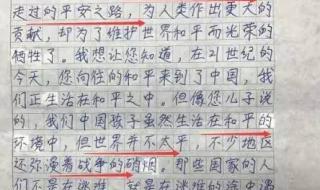 走过的平安之路，为人类作出更大的
贡献，却为了维护世界和平而光荣的
牺牲了。我想让您知道，在21世纪的
今天，您向往的和平来到了中国，我
们正生活在和平之中。但像您儿子说
的，我们中国孩子虽然生活在和平的
环境中，但世界并不太平，不少地区
还弥漫着战争的硝烟。那些国家的人
们不是在逃难，就是在逃难的途中遇